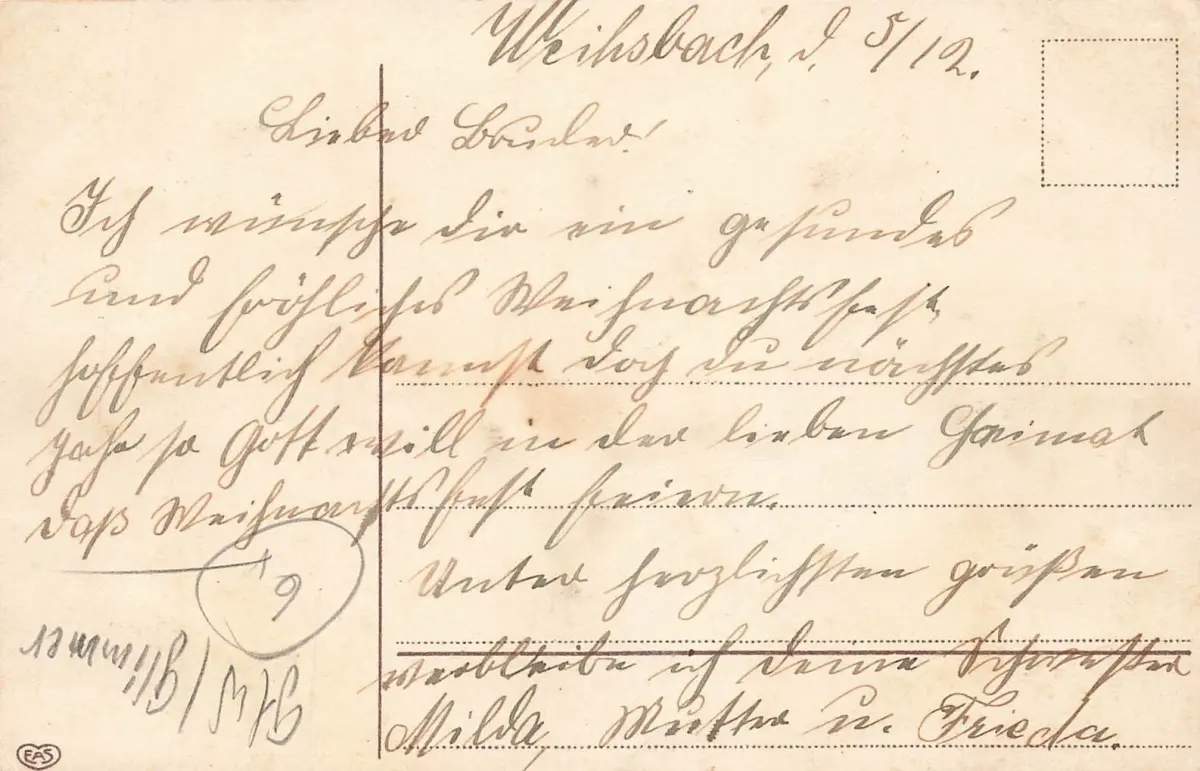 Weihsbach, d. 5/12.
Lieber Bruder!
Ich wünsche dir ein gesundes
und fröhliches Weihnachtsfest,
hoffentlich kannst doch du nächstes
Jahr so Gott will in der lieben Heimat
daß Weihnachtsfest feiern.
Unter herzlichsten grüßen
verbleibe ich deine Schwester
Milda, Mutter u. Frieda.
6,
EAS